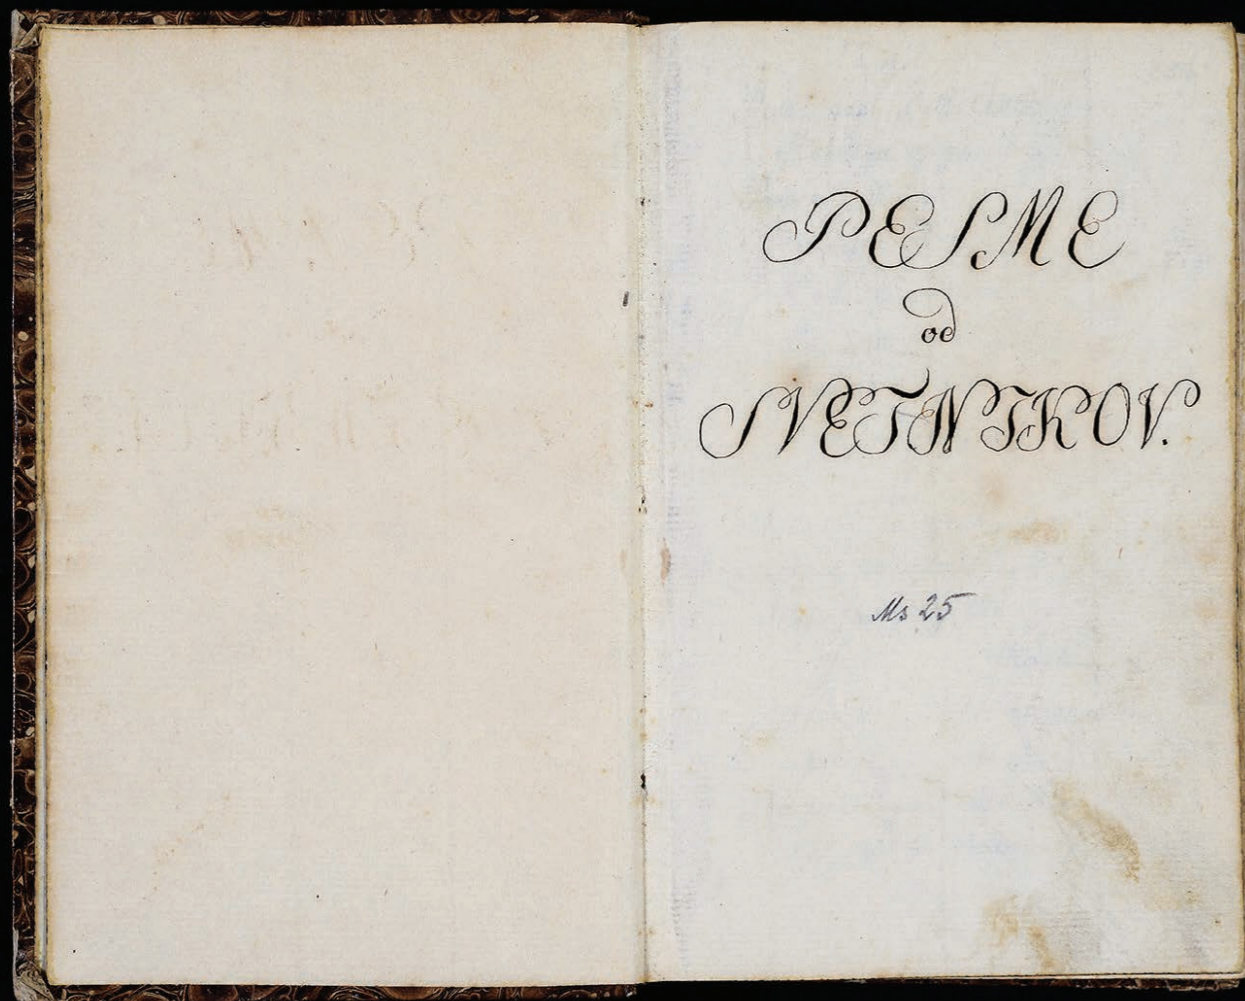 PESME
od
SVETNIKOV.
Ms 25